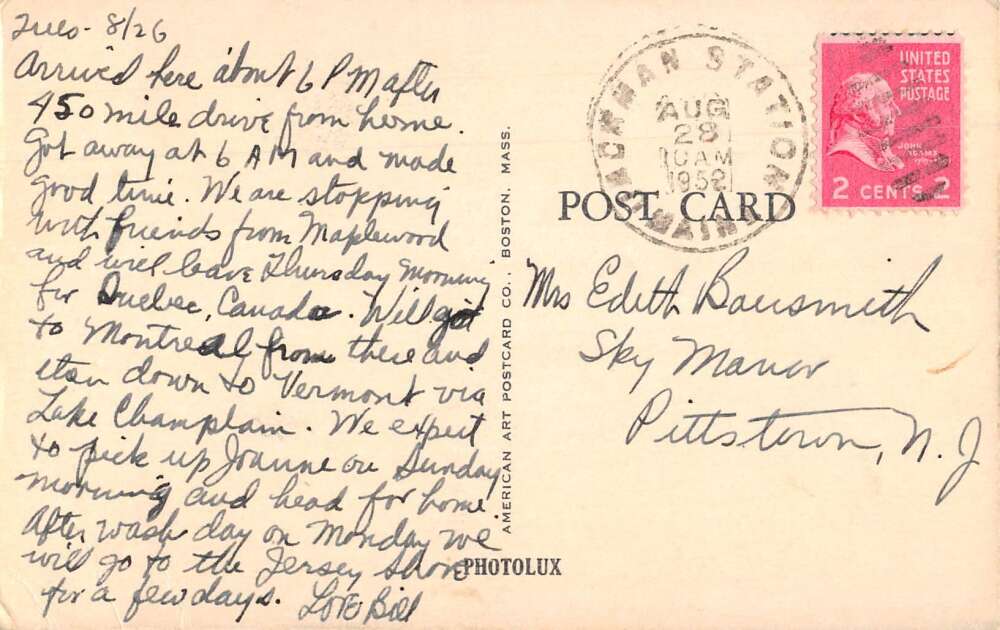 Tues - 8/26
Arrived here about 6 PM after
450 mile drive from home.
Got away at 6 AM and made
good time. We are stopping
with friends from Maplewood
and will leave Thursday Morning
for Quebec, Canada. Will go
to Montreal from there and
then down to Vermont via
Lake Champlain. We expect
to pick up Joanne on Sunday
morning and head for home.
After wash day on Monday we
will go to the Jersey shore
for a few days. Love Bill
AMERICAN ART POSTCARD CO., BOSTON, MASS.
PHOTOLUX
STATION
MAINE
AUG
28
10 AM
1952
UNITED
STATES
POSTAGE
JOHN
ADAMS
2 CENTS 2
POST CARD
Mrs Edith Bausmith
Sky Manor
Pittstown, N. J